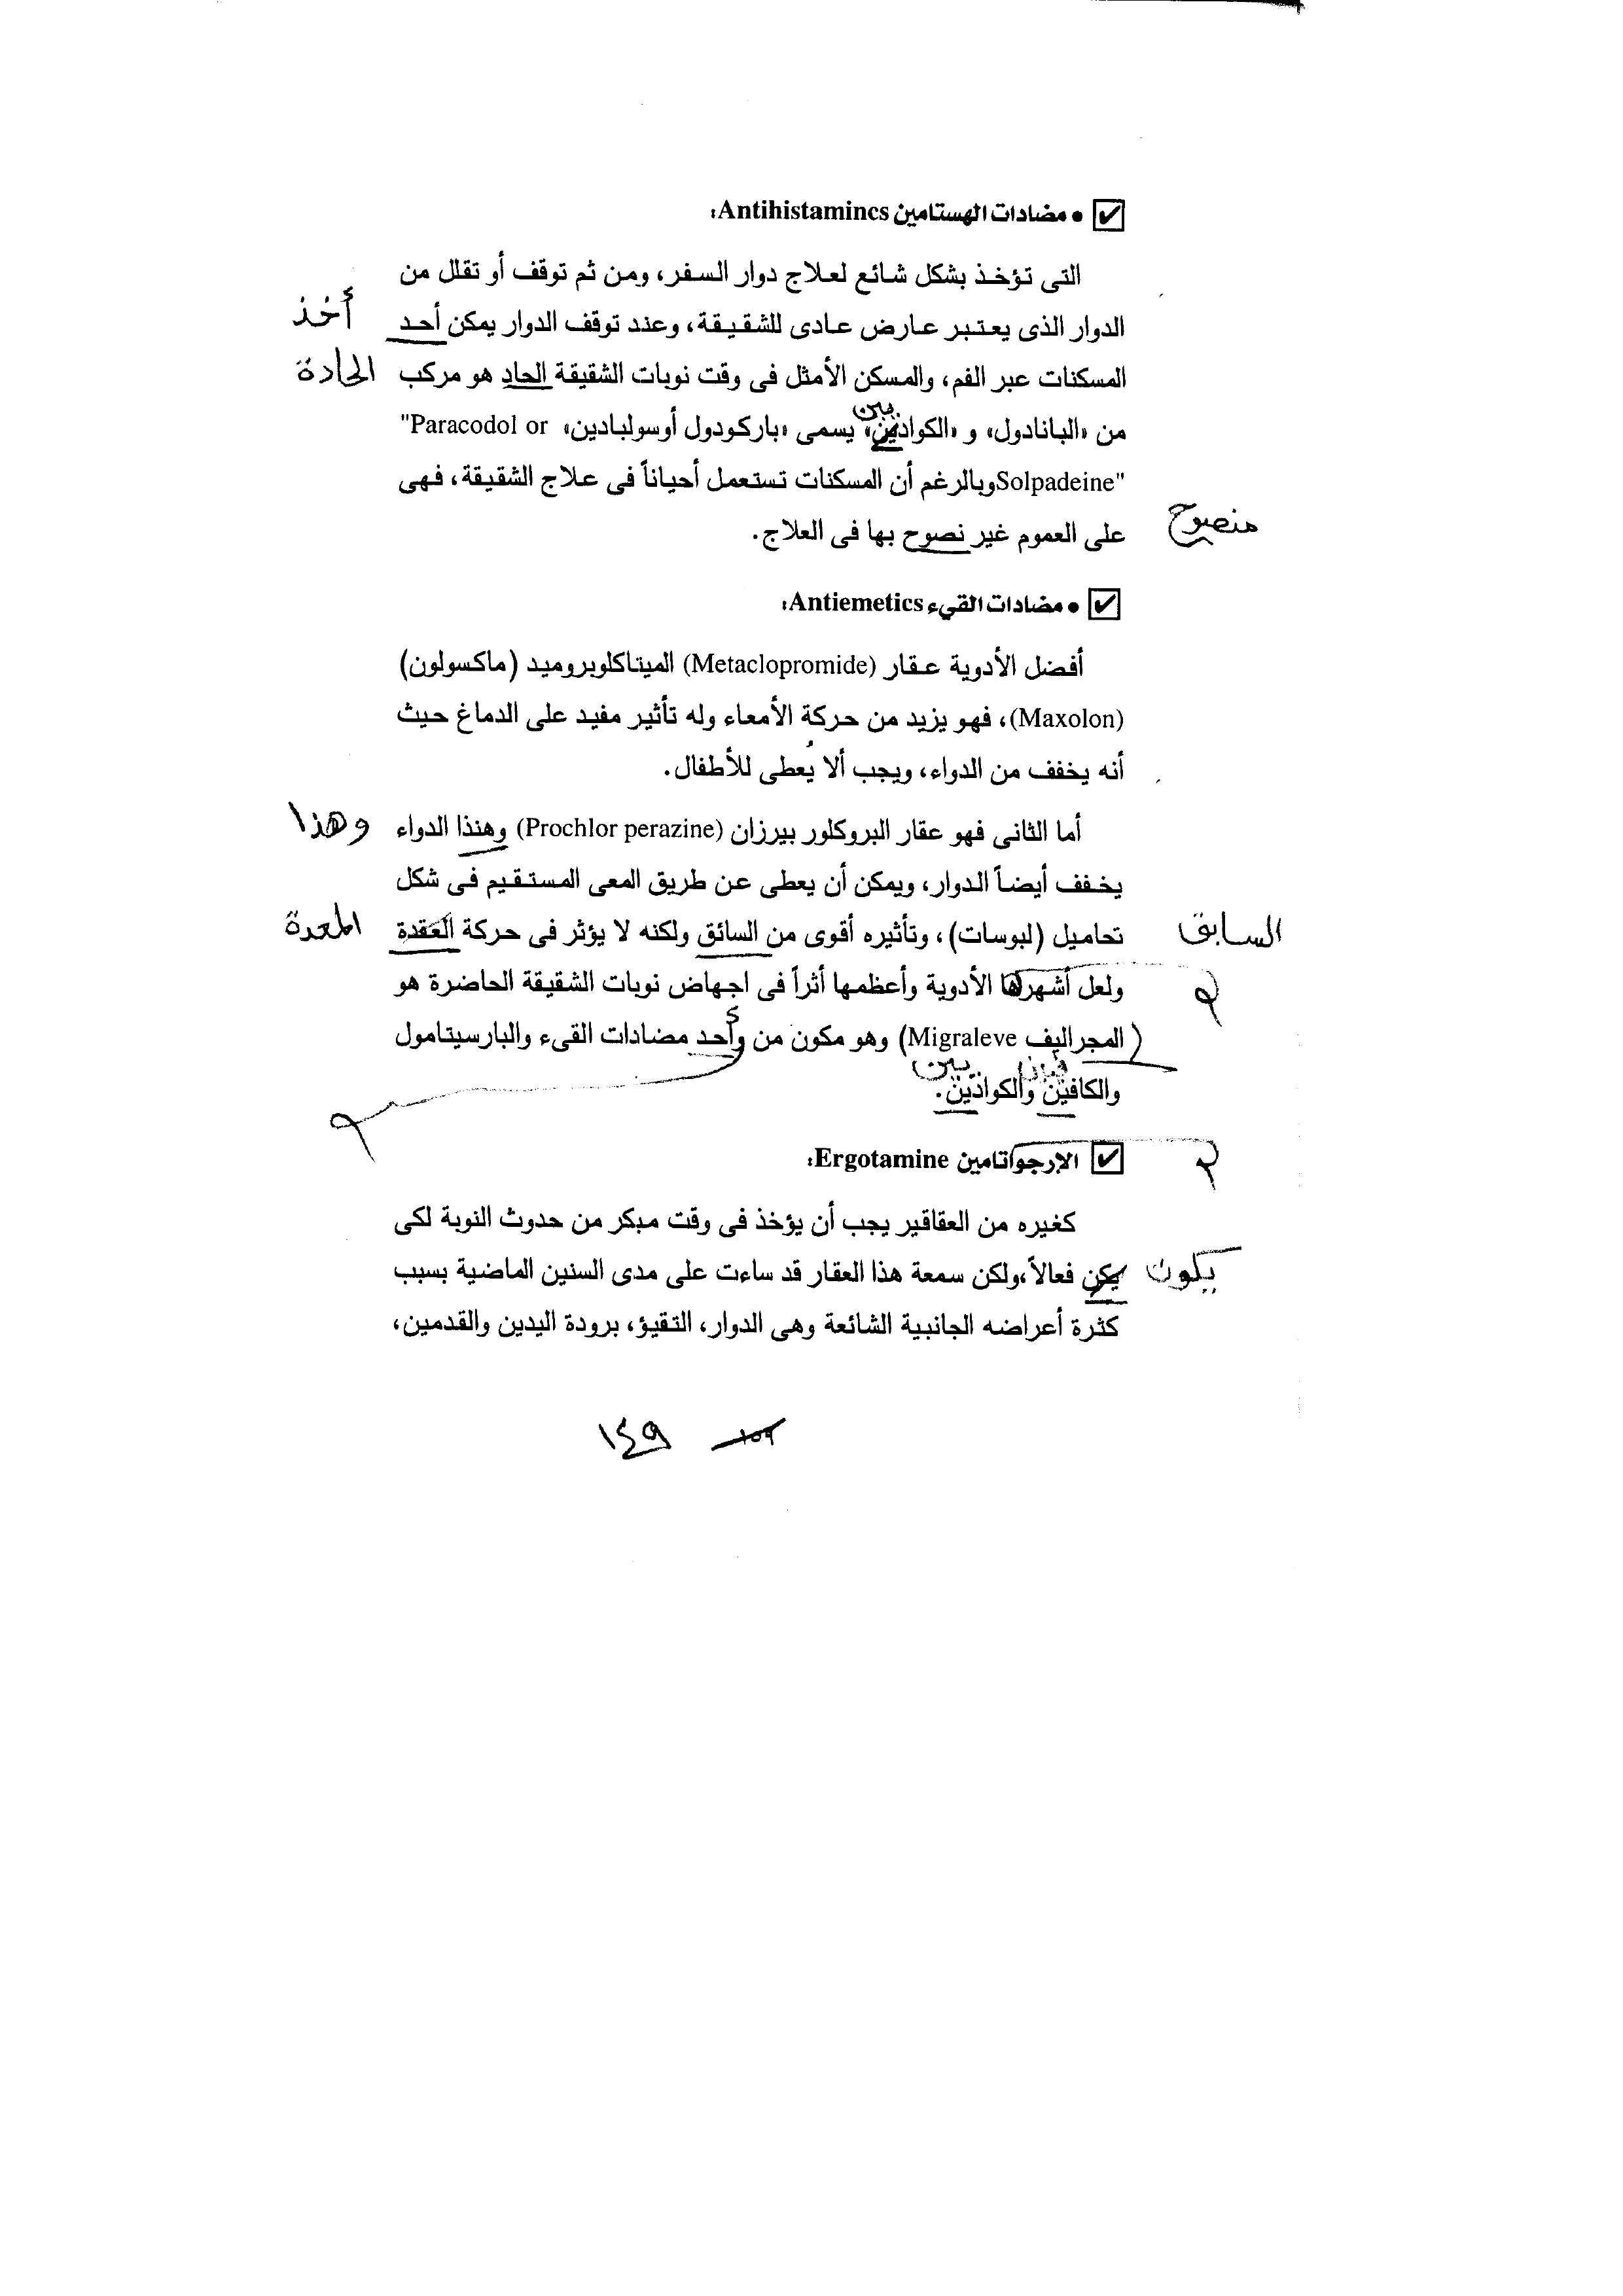 ☑ • مضادات الهستامين Antihistamincs:
التى تؤخذ بشكل شائع لعلاج دوار السفر، ومن ثم توقف أو تقلل من
الدوار الذى يعتبر عارض عادى للشقيقة، وعند توقف الدوار يمكن أحد أخذ
المسكنات عبر الفم، والمسكن الأمثل فى وقت نوبات الشقيقة الحاد هو مركب الحادة
من «البانادول» و «الكوادين» يسمى «باركودول أوسولبادين» Paracodol or"
"Solpadeineوبالرغم أن المسكنات تستعمل أحياناً فى علاج الشقيقة، فهى
منصوح على العموم غير نصوح بها فى العلاج.
☑ • مضادات القيء Antiemetics:
أفضل الأدوية عقار (Metaclopromide) الميتاكلوبروميد (ماكسولون)
(Maxolon)، فهو يزيد من حركة الأمعاء وله تأثير مفيد على الدماغ حيث
أنه يخفف من الدواء، ويجب ألا يُعطى للأطفال.
أما الثانى فهو عقار البروكلور بيرزان (Prochlor perazine) وهنذا الدواء وهذا
يخفف أيضاً الدوار، ويمكن أن يعطى عن طريق المعى المستقيم فى شكل
السابق تحاميل (لبوسات)، وتأثيره أقوى من السائق ولكنه لا يؤثر فى حركة العقدة المعدة
ولعل أشهرها الأدوية وأعظمها أثراً فى اجهاض نوبات الشقيقة الحاضرة هو
(المجراليف Migraleve) وهو مكون من واحد مضادات القىء والبارسيتامول
والكافين والكوادين.
☑ الإرجواتامين Ergotamine:
كغيره من العقاقير يجب أن يؤخذ فى وقت مبكر من حدوث النوبة لكى
يكون يكن فعالاً،ولكن سمعة هذا العقار قد ساءت على مدى السنين الماضية بسبب
كثرة أعراضه الجانبية الشائعة وهى الدوار، التقيؤ، برودة اليدين والقدمين،
١٥٩ ١٤٩